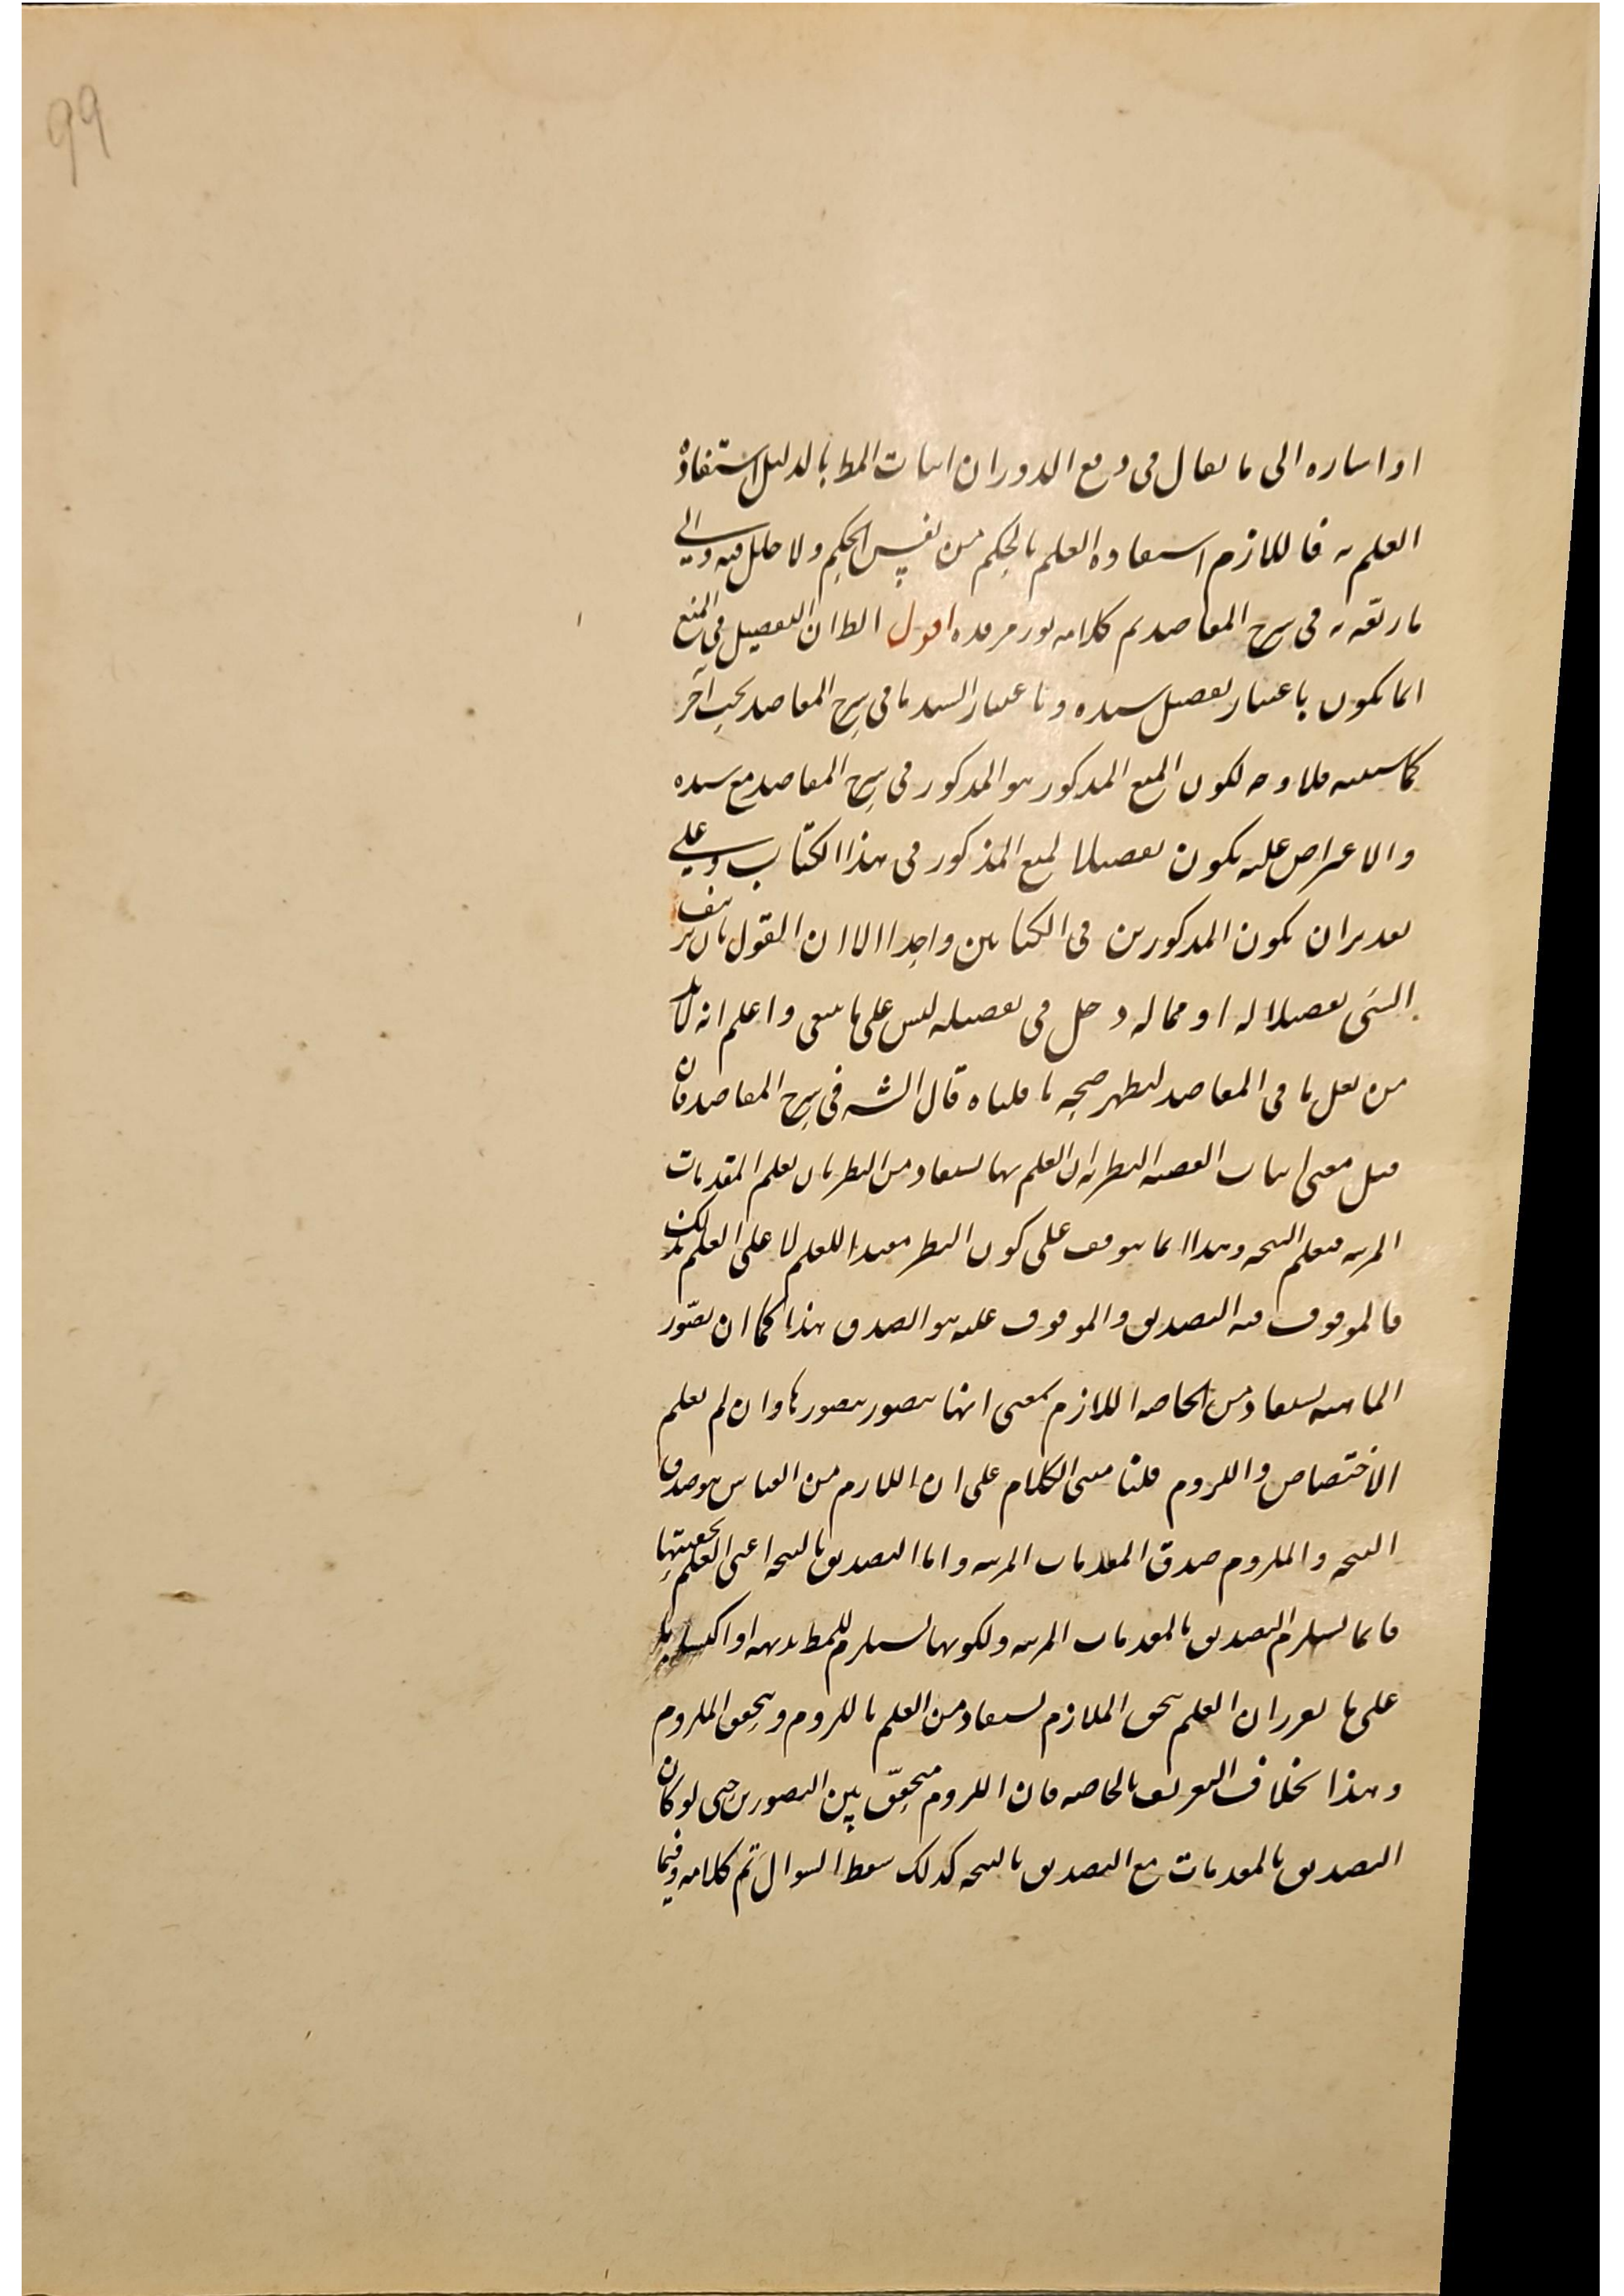 99
او اشاره الى ما يقال فى دفع الدور ان اثبات المط بالدليل استفادة
العلم به فاللازم استفادة العلم بالحكم من نفس الحكم ولا خلل فيه والى
ما زيفه به فى شرح المقاصد تم كلامه نور مرقده اقول الظ ان التفصيل فى المنع
انما يكون باعتبار تفصيل سنده وباعتبار السند ما فى شرح المقاصد بحث آخر
كما ستعينه فلا وجه لكون المنع المذكور هو المذكور فى شرح المقاصد مع سنده
والاعتراض عليه يكون تفصيلا لمنع المذكور فى هذا الكتاب وعلى
تقدير ان يكون المذكورين فى الكتابين واحدا الا ان القول بان تزييف
الشئ تفصيلا له او مما له دخل فى تفصيله ليس على ما ينبغى واعلم انه لا بد
من نقل ما فى المقاصد ليظهر صحة ما قلناه قال الشه فى شرح المقاصد فان
قيل معنى اثبات القضيه النظريه ان العلم بها يستفاد من النظر بان يعلم المقدمات
المرتبه فيعلم النتيجه وهذا انما يتوقف على كون النظر مفيدا للعلم لا على العلم بذلك
فالموقوف فيه التصديق والموقوف عليه هو الصدق هذا كما ان تصور
الماهيه يستفاد من الخاصه اللازم بمعنى انها تتصور بتصورها وان لم يعلم
الاختصاص واللزوم قلنا مبنى الكلام على ان اللازم من القياس هو صدق
النتيجه والملزوم صدق المقدمات المرتبه واما التصديق بالنتيجه اعنى العلم بحقيتها
فانما يستلزم التصديق بالمقدمات المرتبه ولكونها يستلزم للمط بديهه او اكتسابا
على ما تقرر ان العلم بتحقق الملازم يستفاد من العلم باللزوم وبتحقق الملزوم
وهذا بخلاف التعريف بالخاصه فان اللزوم متحقق بين التصورين حتى لو كان
التصديق بالمقدمات مع التصديق بالنتيجه كذلك سقط السوال تم كلامه وفيما